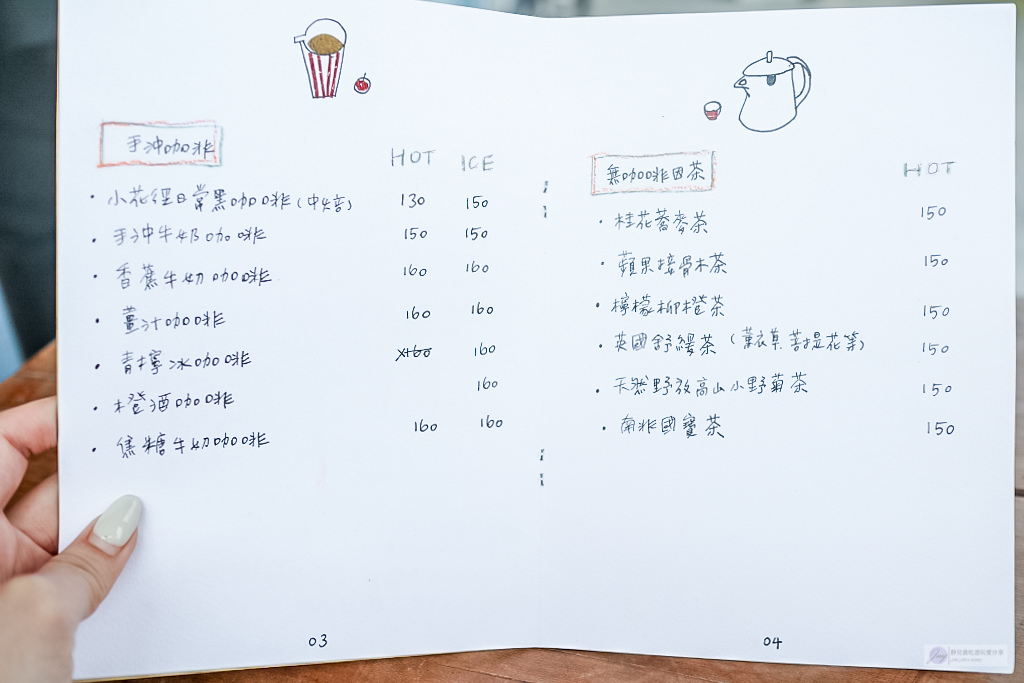 手沖咖啡
HOT ICE
・小花徑日常黑咖啡(中焙) 130 150
・手沖牛奶咖啡 150 150
・香蕉牛奶咖啡 160 160
・薑汁咖啡 160 160
・青檸冰咖啡 160 160
・橙酒咖啡 160
・焦糖牛奶咖啡 160 160
03
無咖啡因茶
HOT
・桂花蕎麥茶 150
・蘋果接骨木茶 150
・檸檬柳橙茶 150
・英國舒緩茶(薰衣草菩提花等) 150
・天然野放高山小野菊茶 150
・南非國寶茶 150
04